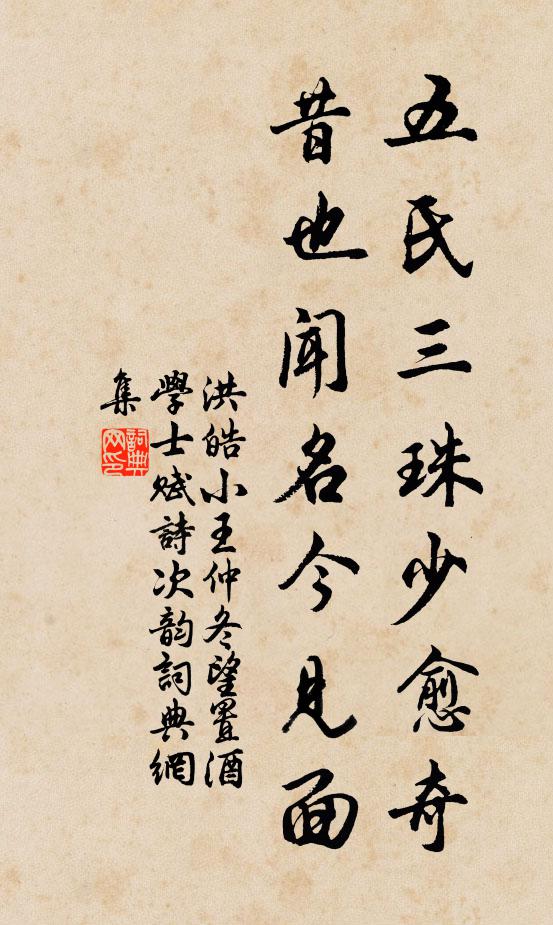 五氏三珠少愈奇
昔也聞名今見面
洪皓小王仲冬望置酒
學士賦詩次韵詞典網
集
詞典
网印